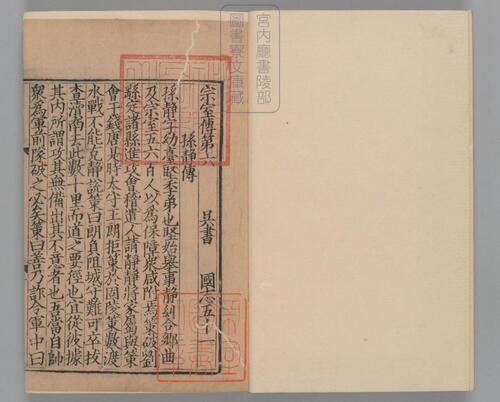 宮内廳書陵部
圖書寮文庫藏
宗室傳第六　吳書　國志五十一
孫靜傳
孫靜字幼臺堅季弟也堅始舉事靜糾合鄉曲
及宗室五六百人以為保障衆咸附焉策破劉
縣定諸縣進攻會稽遣人請靜靜將家屬與策
會于錢唐是時太守王朗拒策於固陵策數渡
水戰不能克靜說策曰朗負阻城守難可卒拔
查瀆南去此數十里而道之要徑也宜從彼據
其内所謂攻其無備出其不意者也吾當自帥
衆為軍前隊破之必矣策曰善乃詐令軍中曰